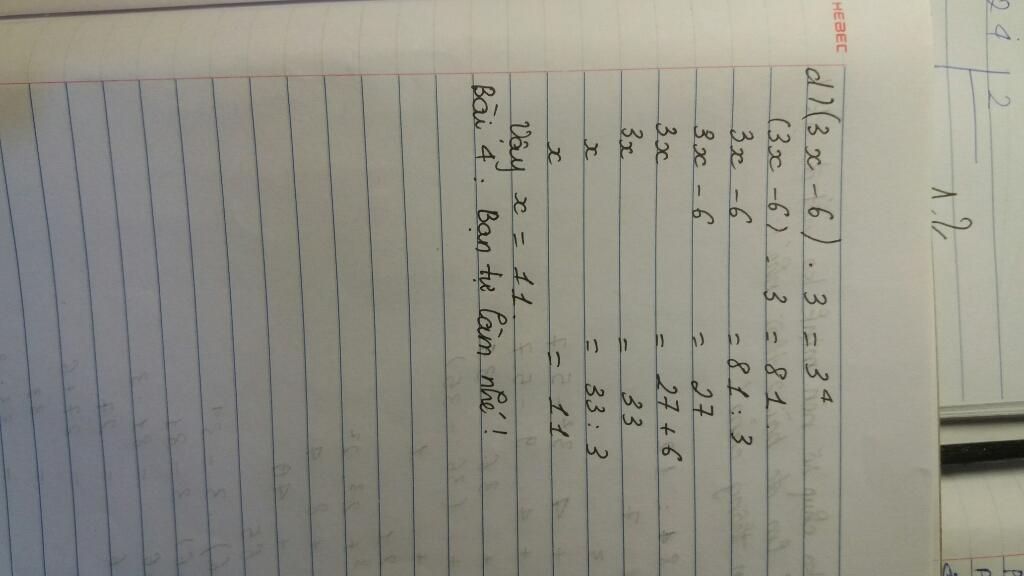 HEBEC
d) (3x - 6) . 3 = 3⁴
(3x - 6) . 3 = 81
3x - 6 = 81 : 3
3x - 6 = 27
3x = 27 + 6
3x = 33
x = 33 : 3
x = 11
Vậy x = 11.
Bài 4 : Bạn tự làm nhé!
24 2
1.2